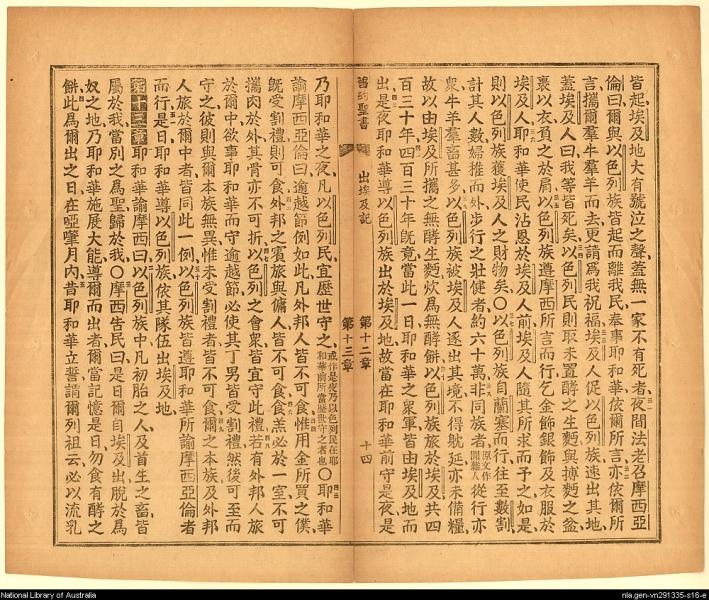 皆起、埃及地大有號泣之聲、蓋無一家不有死者、夜間法老召摩西亞
倫曰、爾與以色列族皆起而離我民、奉事耶和華、依爾所言、亦依爾所
言、攜爾羣牛羣羊而去、更請爲我祝福、埃及人促以色列族速出其地、
蓋埃及人曰、我等皆死矣、以色列民則取未置酵之生麵與摶麵之盆、
裹以衣、負之於肩、以色列族遵摩西所言而行、乞金飾銀飾及衣服於
埃及人、耶和華使民沾恩於埃及人前、埃及人隨其所求而予之、如是
則以色列族獲埃及人之財物矣、〇以色列族自蘭塞而行、往至數割、
計其人數、婦孺而外、步行之壯健者、約六十萬、非同族者原文作閒雜人從行、亦
衆、牛羊羣畜甚多、以色列族被埃及人逐出其境、不得躭延、亦未備糧、
故以由埃及所攜之無酵生麵、炊爲無酵餅、以色列族旅於埃及、共四
百三十年、四百三十年旣竟、當此一日、耶和華之衆軍、皆由埃及地而
出、是夜耶和華導以色列族出於埃及地、故當在耶和華前守是夜、是
舊約聖書 出埃及記 第十二章 第十三章 十四
乃耶和華之夜、凡以色列民宜歷世守之、或作是夜乃以色列民在耶和華前所當歷世守之者也〇耶和華
諭摩西亞倫曰、逾越節例如此、凡外邦人皆不可食、惟用金所買之僕、
旣受割禮、則可食、外邦之賓旅與傭人、皆不可食、食羔必於一室、不可
攜肉於外、其骨亦不可折、以色列之會衆皆宜守此禮、若有外邦人旅
於爾中、欲事耶和華而守逾越節、必使其丁男皆受割禮、然後可至而
守之、彼則與爾本族無異、惟未受割禮者、皆不可食、爾之本族、及外邦
人旅於爾中者、皆同此一例、以色列族皆遵耶和華所諭摩西亞倫者
而行、是日耶和華導以色列族、依其隊伍出埃及地、
第十三章 耶和華諭摩西曰、以色列族中、凡初胎之人、及首生之畜、皆
屬於我、當別之爲聖、歸於我、〇摩西告民曰、是日爾自埃及出、脫於爲
奴之地、乃耶和華施展大能導爾而出者、爾當記憶是日、勿食有酵之
餅、此爲爾出之日、在啞肇月內、昔耶和華立誓、請爾列祖云、必以流乳
National Library of Australia
nla.gen-vn291335-s16-e